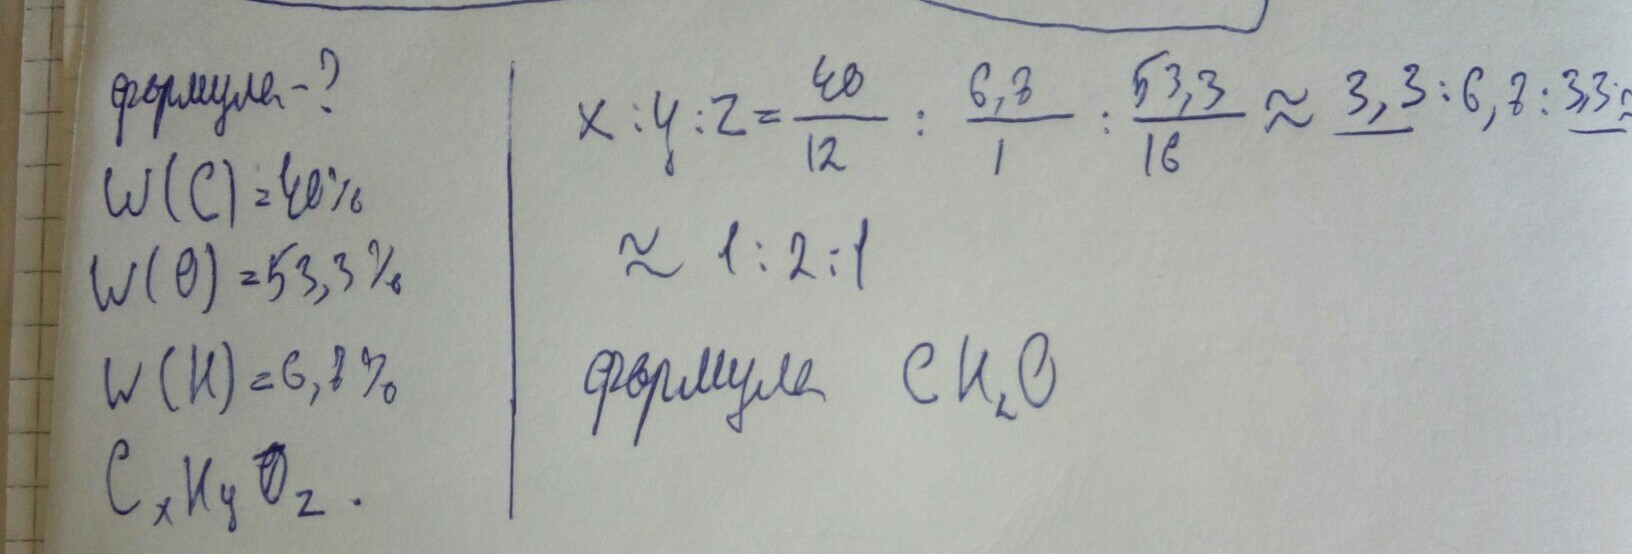 формула-?
W(C)=40%
W(O)=53,3%
W(H)=6,7%
CxHyOz.
x:y:z= 40/12 : 6,7/1 : 53,3/16 ≈ 3,3:6,7:3,3≈
≈ 1:2:1
формула CH₂O